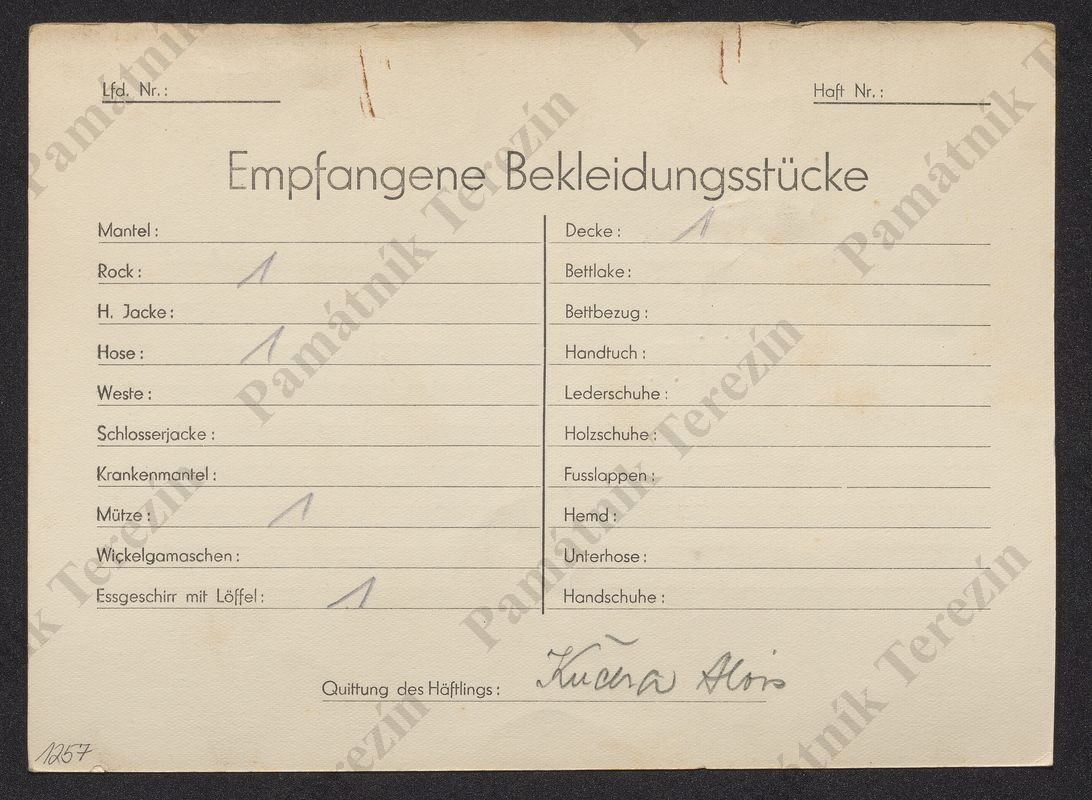 Lfd. Nr.:
Haft Nr.:
Empfangene Bekleidungsstücke
Mantel:
Rock: 1
H. Jacke:
Hose: 1
Weste:
Schlosserjacke:
Krankenmantel:
Mütze: 1
Wickelgamaschen:
Essgeschirr mit Löffel: 1
Decke: 1
Bettlake:
Bettbezug:
Handtuch:
Lederschuhe:
Holzschuhe:
Fusslappen:
Hemd:
Unterhose:
Handschuhe:
Quittung des Häftlings: Kučera Alois
1257
Památník Terezín
Památník Terezín
Památník Terezín
Památník Terezín
Památník Terezín